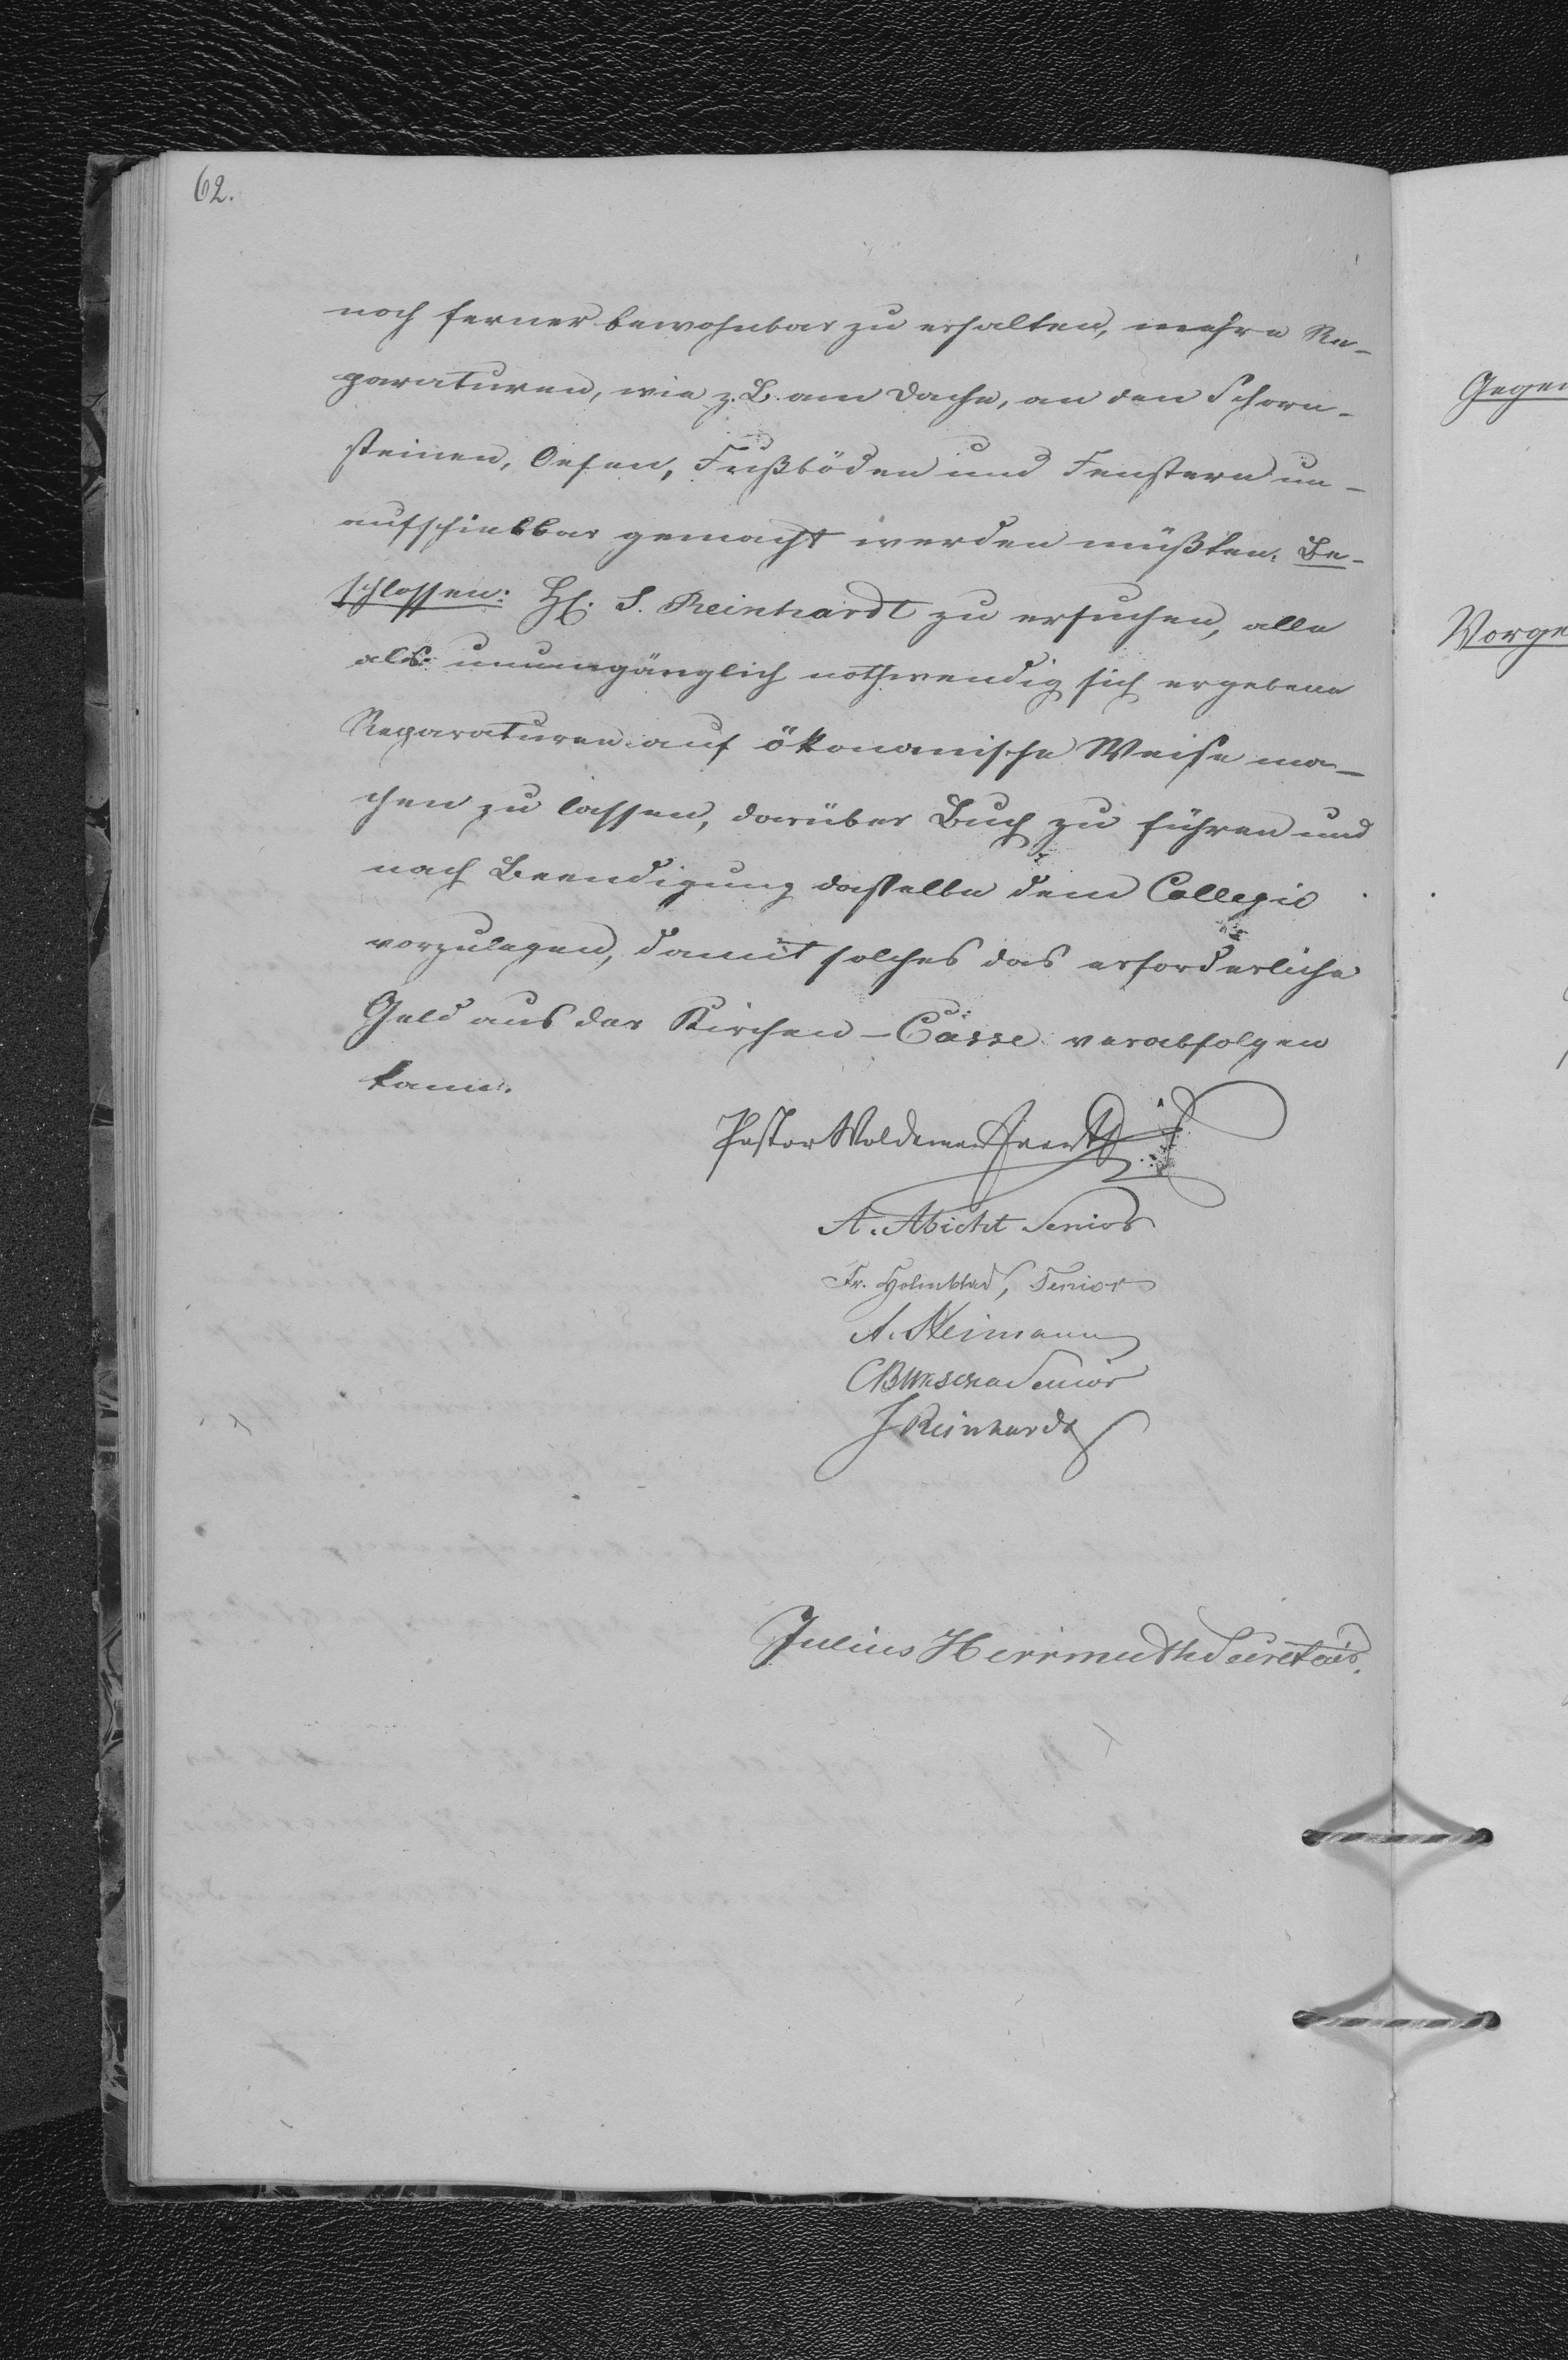 62.
noch ferner bewohnbar zu erhalten, mehre Re-
paraturen, wie z. B. am Dache, an den Schorn-
steinen, Oefen, Fußböden und Fenstern un-
aufschiebbar gemacht werden müßten. Be-
schlossen: H: S. Reinhardt zu ersuchen, alle
als unumgänglich nothwendig sich ergebene
Reparaturen auf ökonomische Weise ma-
chen zu lassen, darüber Buch zu führen und
nach Beendigung dasselbe dem Collegio
vorzulegen, damit solches das erforderliche
Geld aus der Kirchen-Casse verabfolgen
kann.
Pastor Woldemar
A. Abicht Senior
Fr. Holmblad, Senior
A. Neimann
Senior
J Reinhardt
Julius Herrmuth Secretair.
Gegen
Vorge